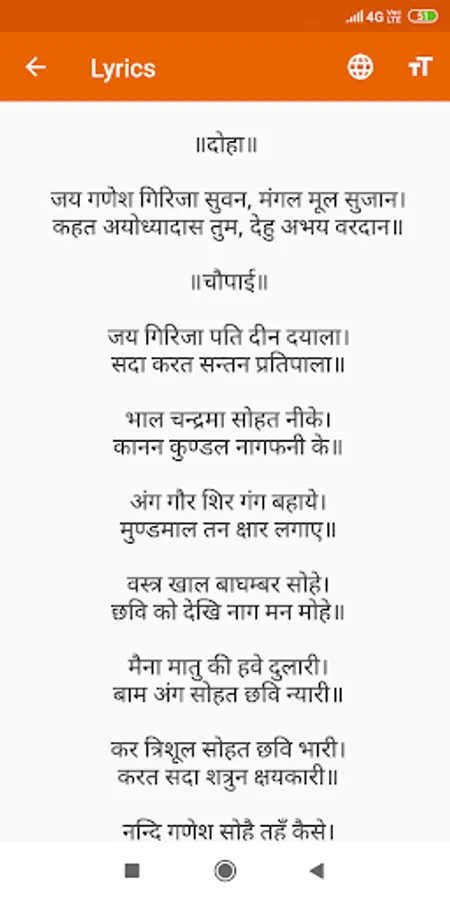 4G Vo LTE 51
Lyrics
॥दोहा॥
जय गणेश गिरिजा सुवन, मंगल मूल सुजान।
कहत अयोध्यादास तुम, देहु अभय वरदान॥
॥चौपाई॥
जय गिरिजा पति दीन दयाला।
सदा करत सन्तन प्रतिपाला॥
भाल चन्द्रमा सोहत नीके।
कानन कुण्डल नागफनी के॥
अंग गौर शिर गंग बहाये।
मुण्डमाल तन क्षार लगाए॥
वस्त्र खाल बाघम्बर सोहे।
छवि को देखि नाग मन मोहे॥
मैना मातु की हवे दुलारी।
बाम अंग सोहत छवि न्यारी॥
कर त्रिशूल सोहत छवि भारी।
करत सदा शत्रुन क्षयकारी॥
नन्दि गणेश सोहै तहँ कैसे।